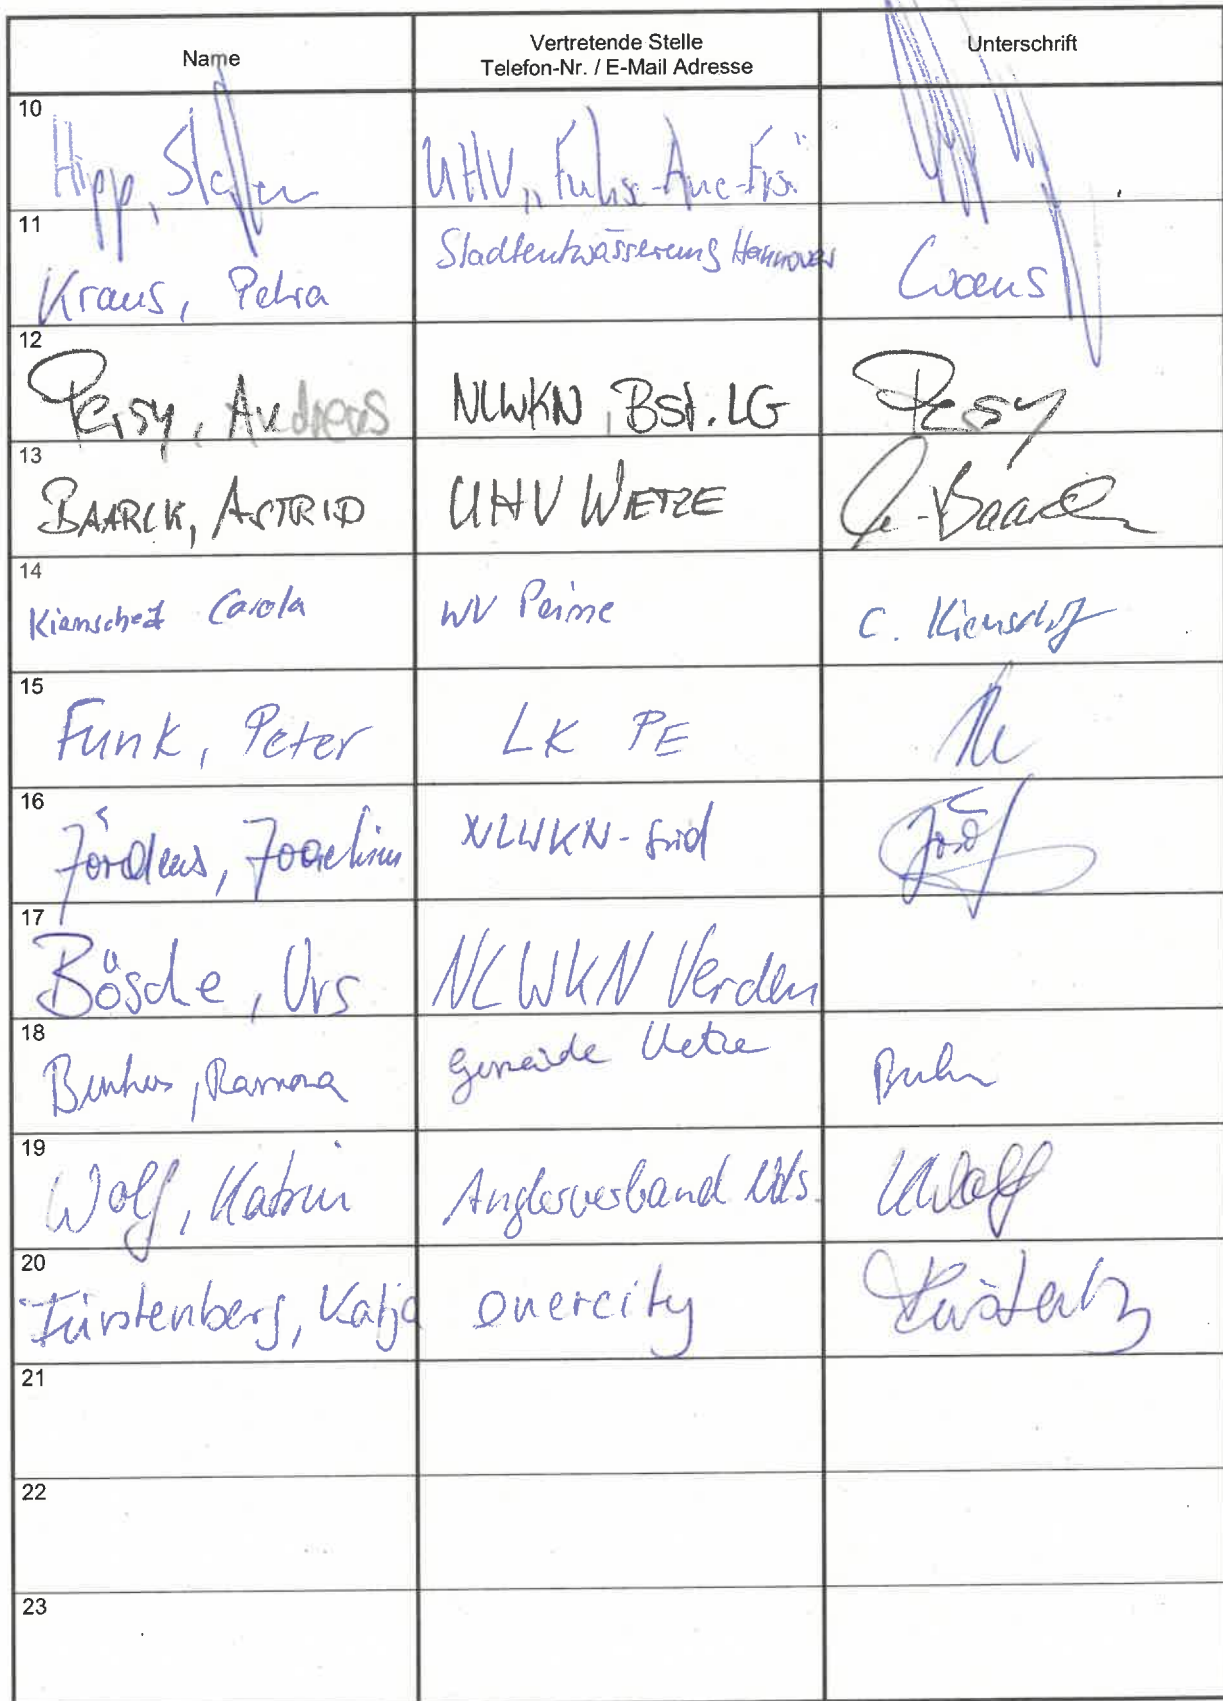 Name
Vertretende Stelle
Telefon-Nr. / E-Mail Adresse
Unterschrift
10
Hipp, Steffen UHV „Fuhse-Aue-Erse"
11
Kraus, Petra Stadtentwässerung Hannover Kraus
12
Persy, Andreas NLWKN, Bst. LG Persy
13
BAARCK, ASTRID UHV WIETZE A. Baarck
14
Carola WV Peine C.
15
Funk, Peter LK PE
16
Jördens, Joachim NLWKN-Süd
17
Bösche, Urs NLWKN Verden
18
Ramona Gemeinde Uetze
19
Wolf, Katrin Anglerverband Nds. KWolf
20
Fürstenberg, Katja Quercity
21
22
23